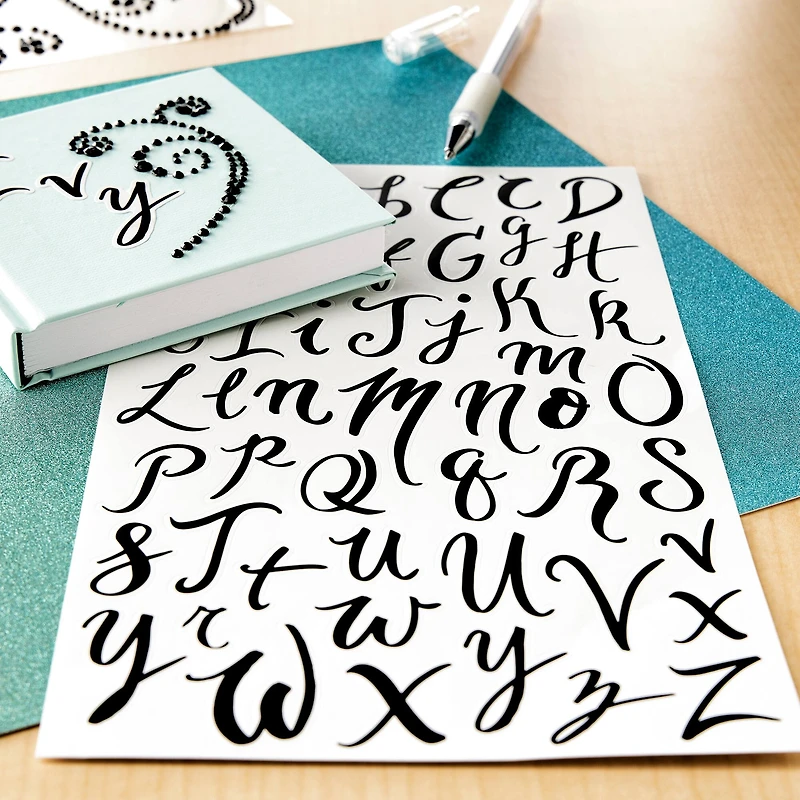 vy
b C c D
G g H
I i J j K k
L l n M n m o O
P p Q q R S
s T t u U V v
y r w W X y z Z x